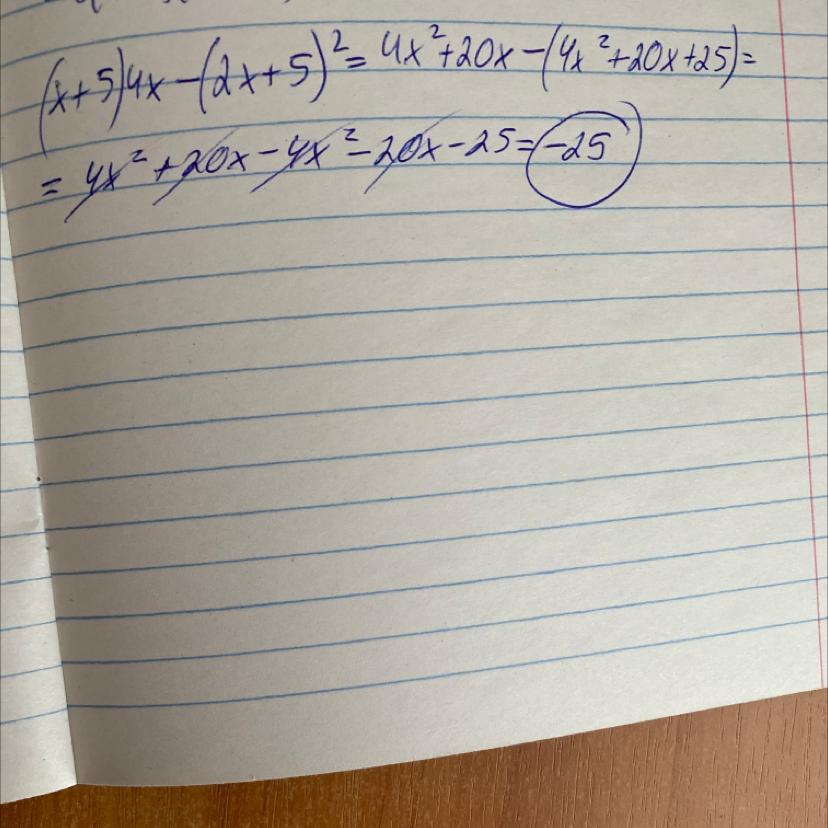 (x+5)4x-(2x+5)²=4x²+20x-(4x²+20x+25)=
=4x²+20x-4x²-20x-25=-25